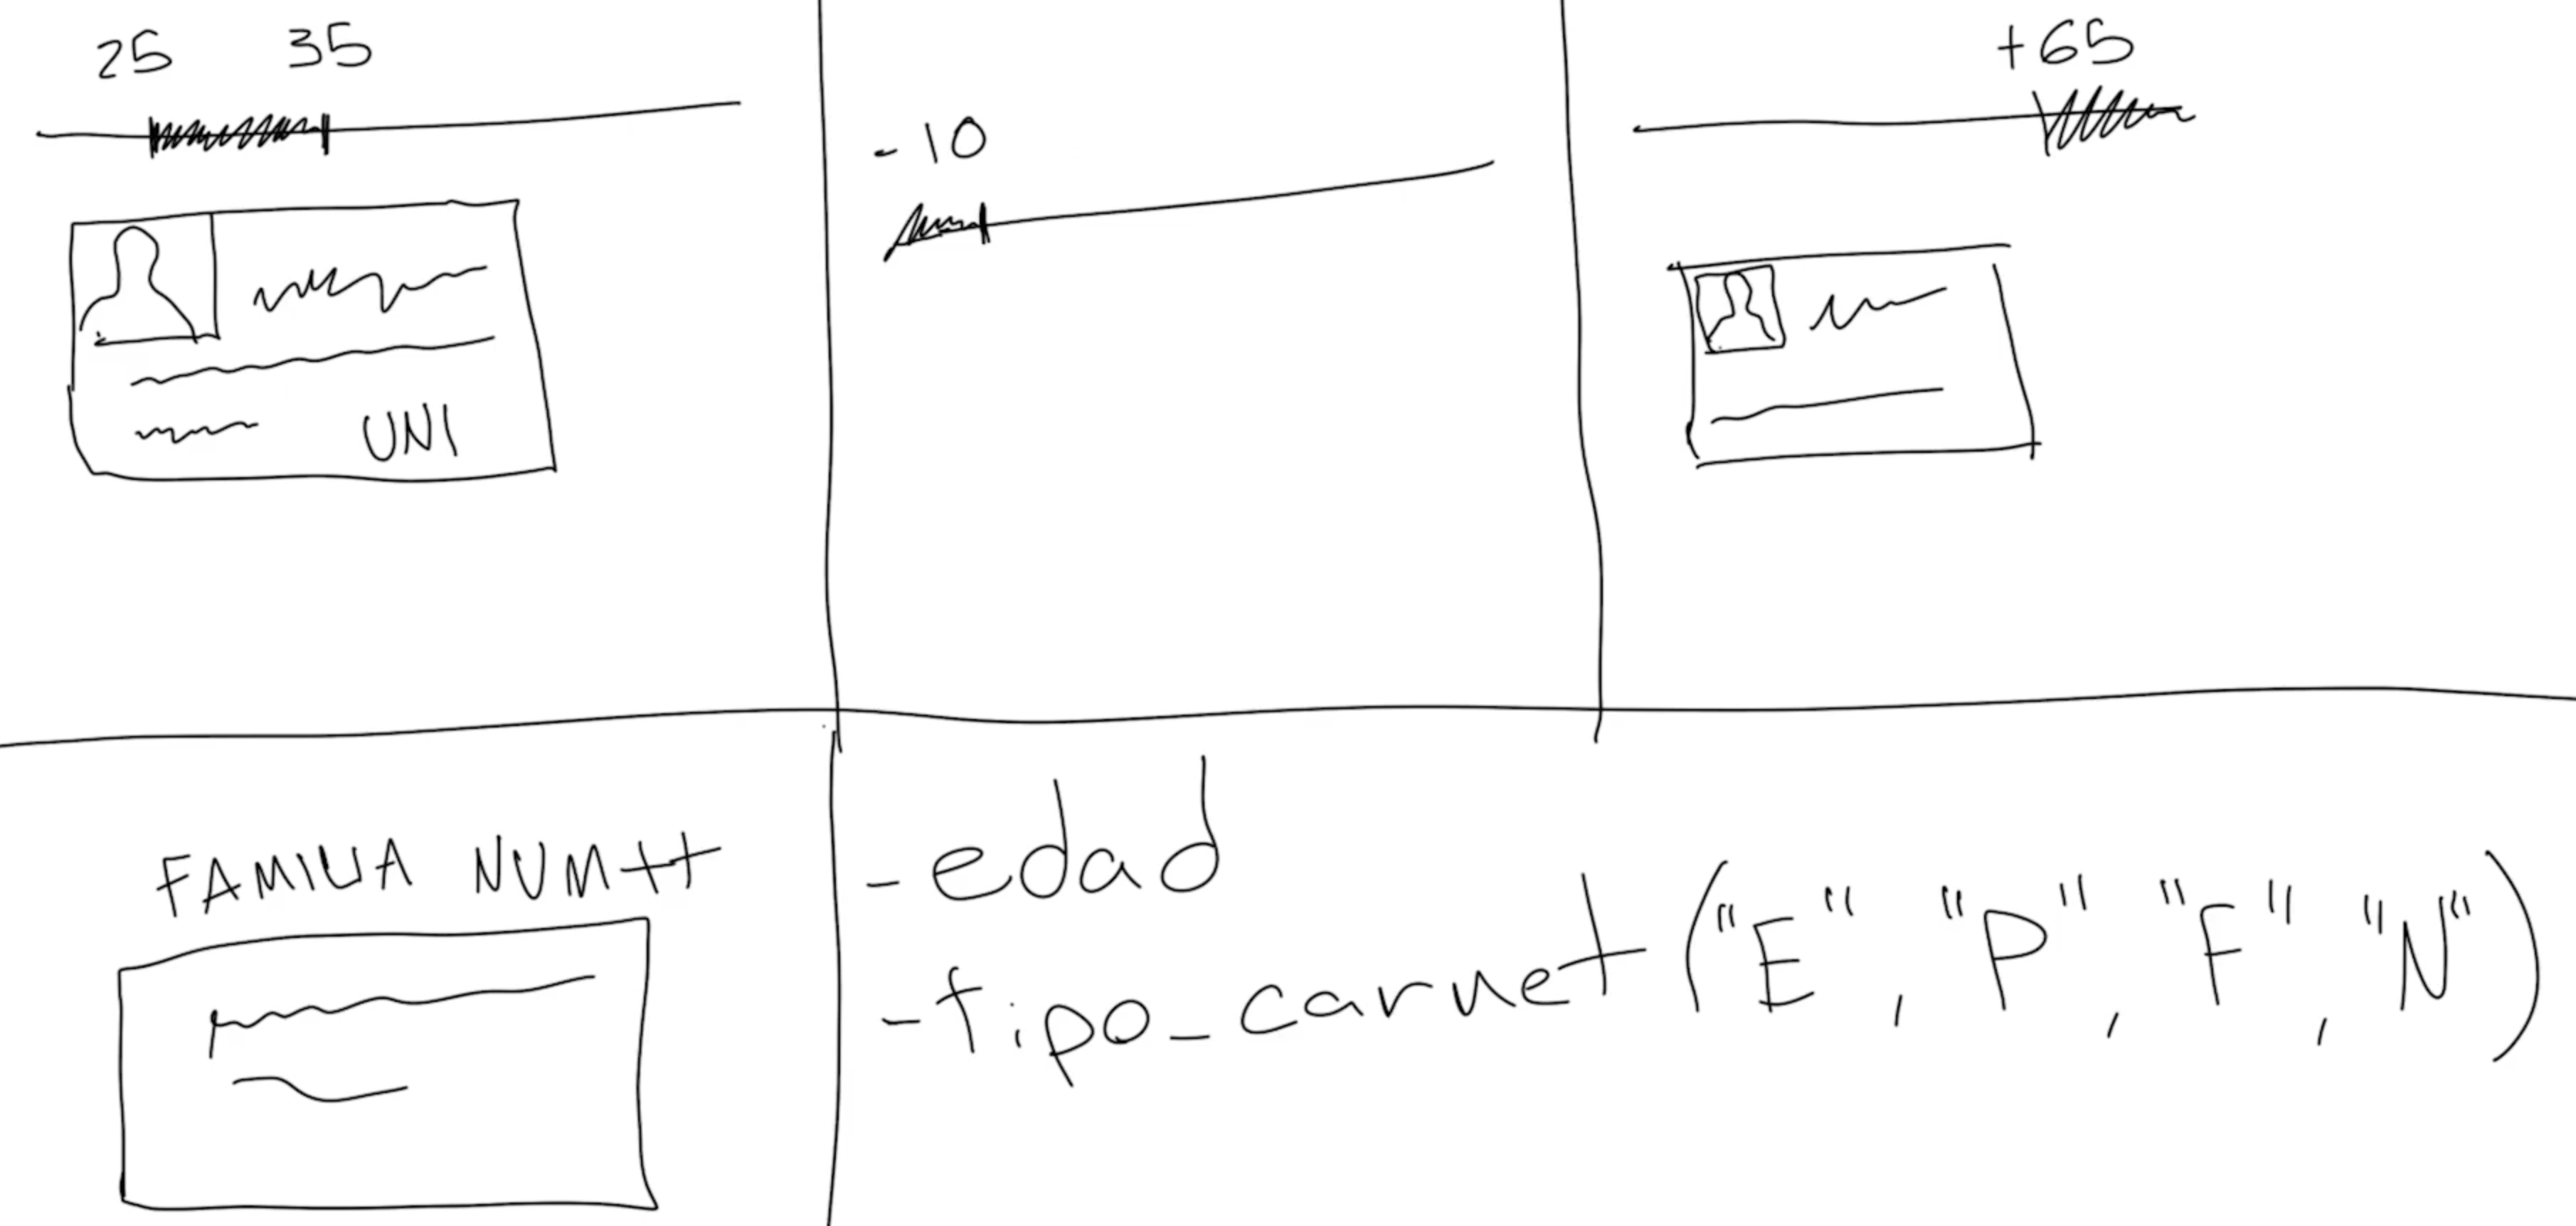 25 35
-10
+65
UNI
FAMILIA NUM++
-edad
-tipo_carnet ("E", "P", "F", "N")